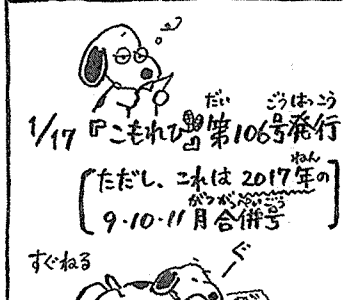 1/17『こもれび』第106号発行
だい ごうはっこう
ただし、これは2017年の
ねん
9・10・11月合併号
がつがっぺいごう
すぐねる
ぐ